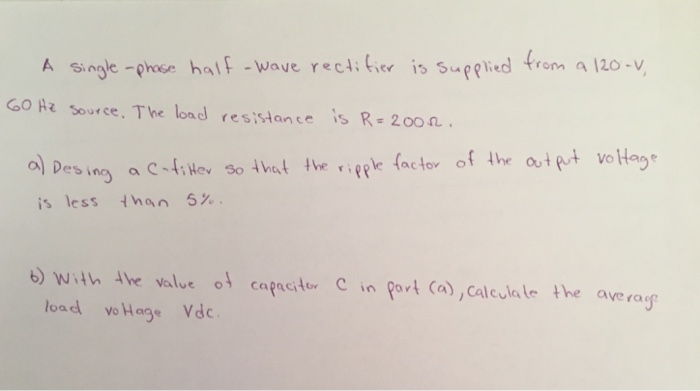 A single-phase half-wave rectifier is supplied from a 120-V,
60 Hz source. The load resistance is R = 200Ω.
a) Desing a C-filter so that the ripple factor of the output voltage
is less than 5%.
b) With the value of capacitor C in part (a), calculate the average
load voltage Vdc.